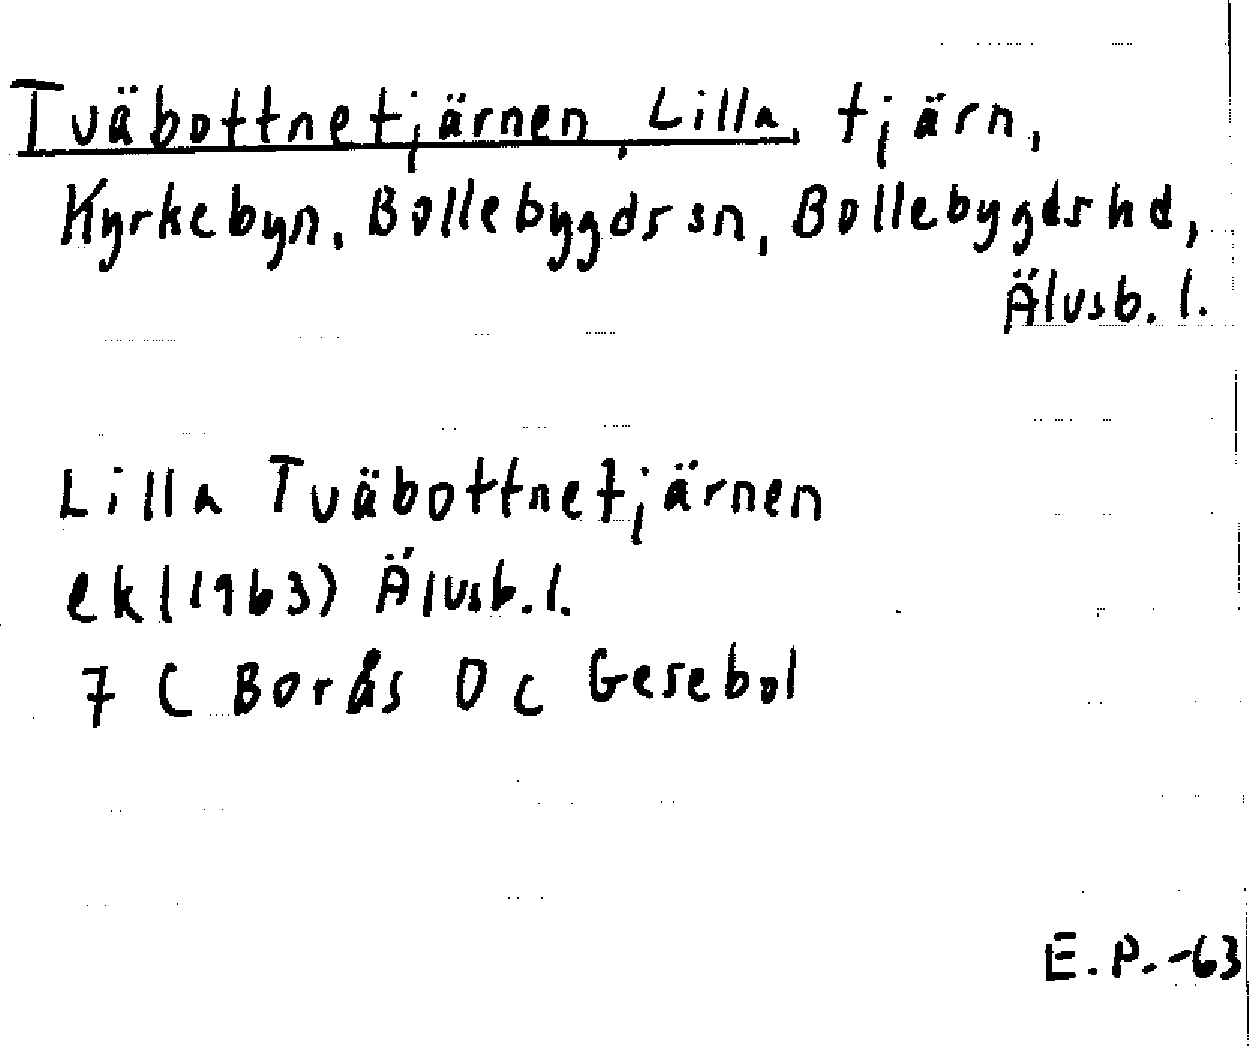 Tväbottnetjärnen, Lilla, tjärn,
Kyrkebyn, Bollebygds sn, Bollebygds hd,
Älvsb. l.
Lilla Tväbottnetjärnen
ekl (1963) Älvsb. l.
7 C Borås 0 c Gesebol
E.P. -63